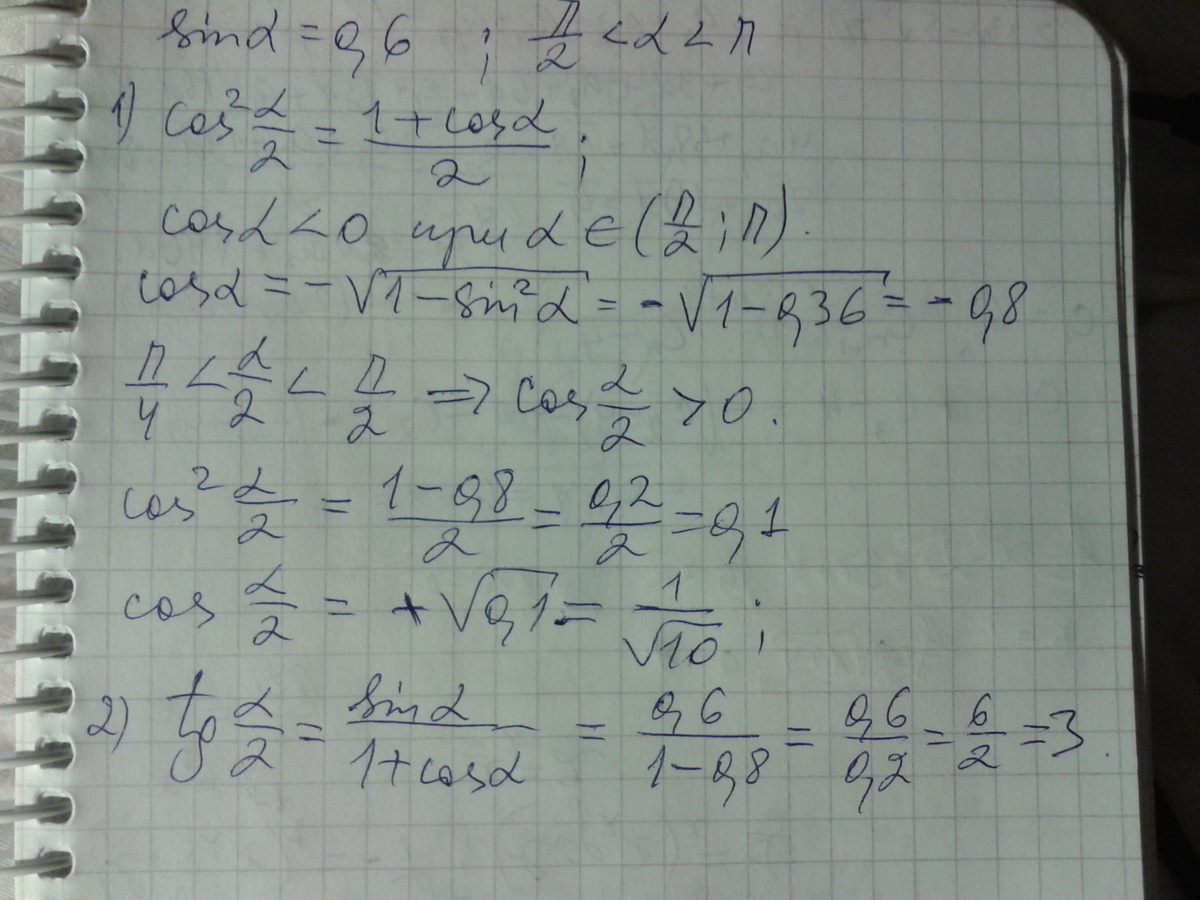 sinα = 0,6 ; π/2 < α < π
1) cos² α/2 = (1 + cosα)/2 ;
cosα < 0 при α ∈ (π/2 ; π).
cosα = - √(1 - sin²α) = - √(1 - 0,36) = - 0,8
π/4 < α/2 < π/2 ⇒ cos α/2 > 0.
cos² α/2 = (1 - 0,8)/2 = 0,2/2 = 0,1
cos α/2 = + √0,1 = 1/√10 ;
2) tg α/2 = sinα/(1 + cosα) = 0,6/(1 - 0,8) = 0,6/0,2 = 6/2 = 3.